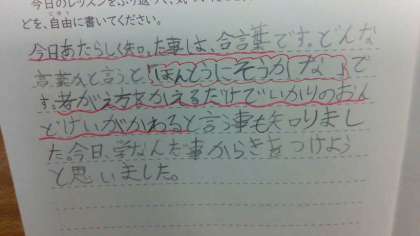 今日のレッスンをふり返って、気づいたこ
どを、自由に書いてください。
今日あたらしく知った事は、合言葉です。どんな
言葉かと言うと「ほんとうにそうかな」で
す。考がえ方をかえるだけでいかりのおん
どけいがかわると言う事も知りまし
た。今日、学なんだ事からきをつけよう
と思いました。